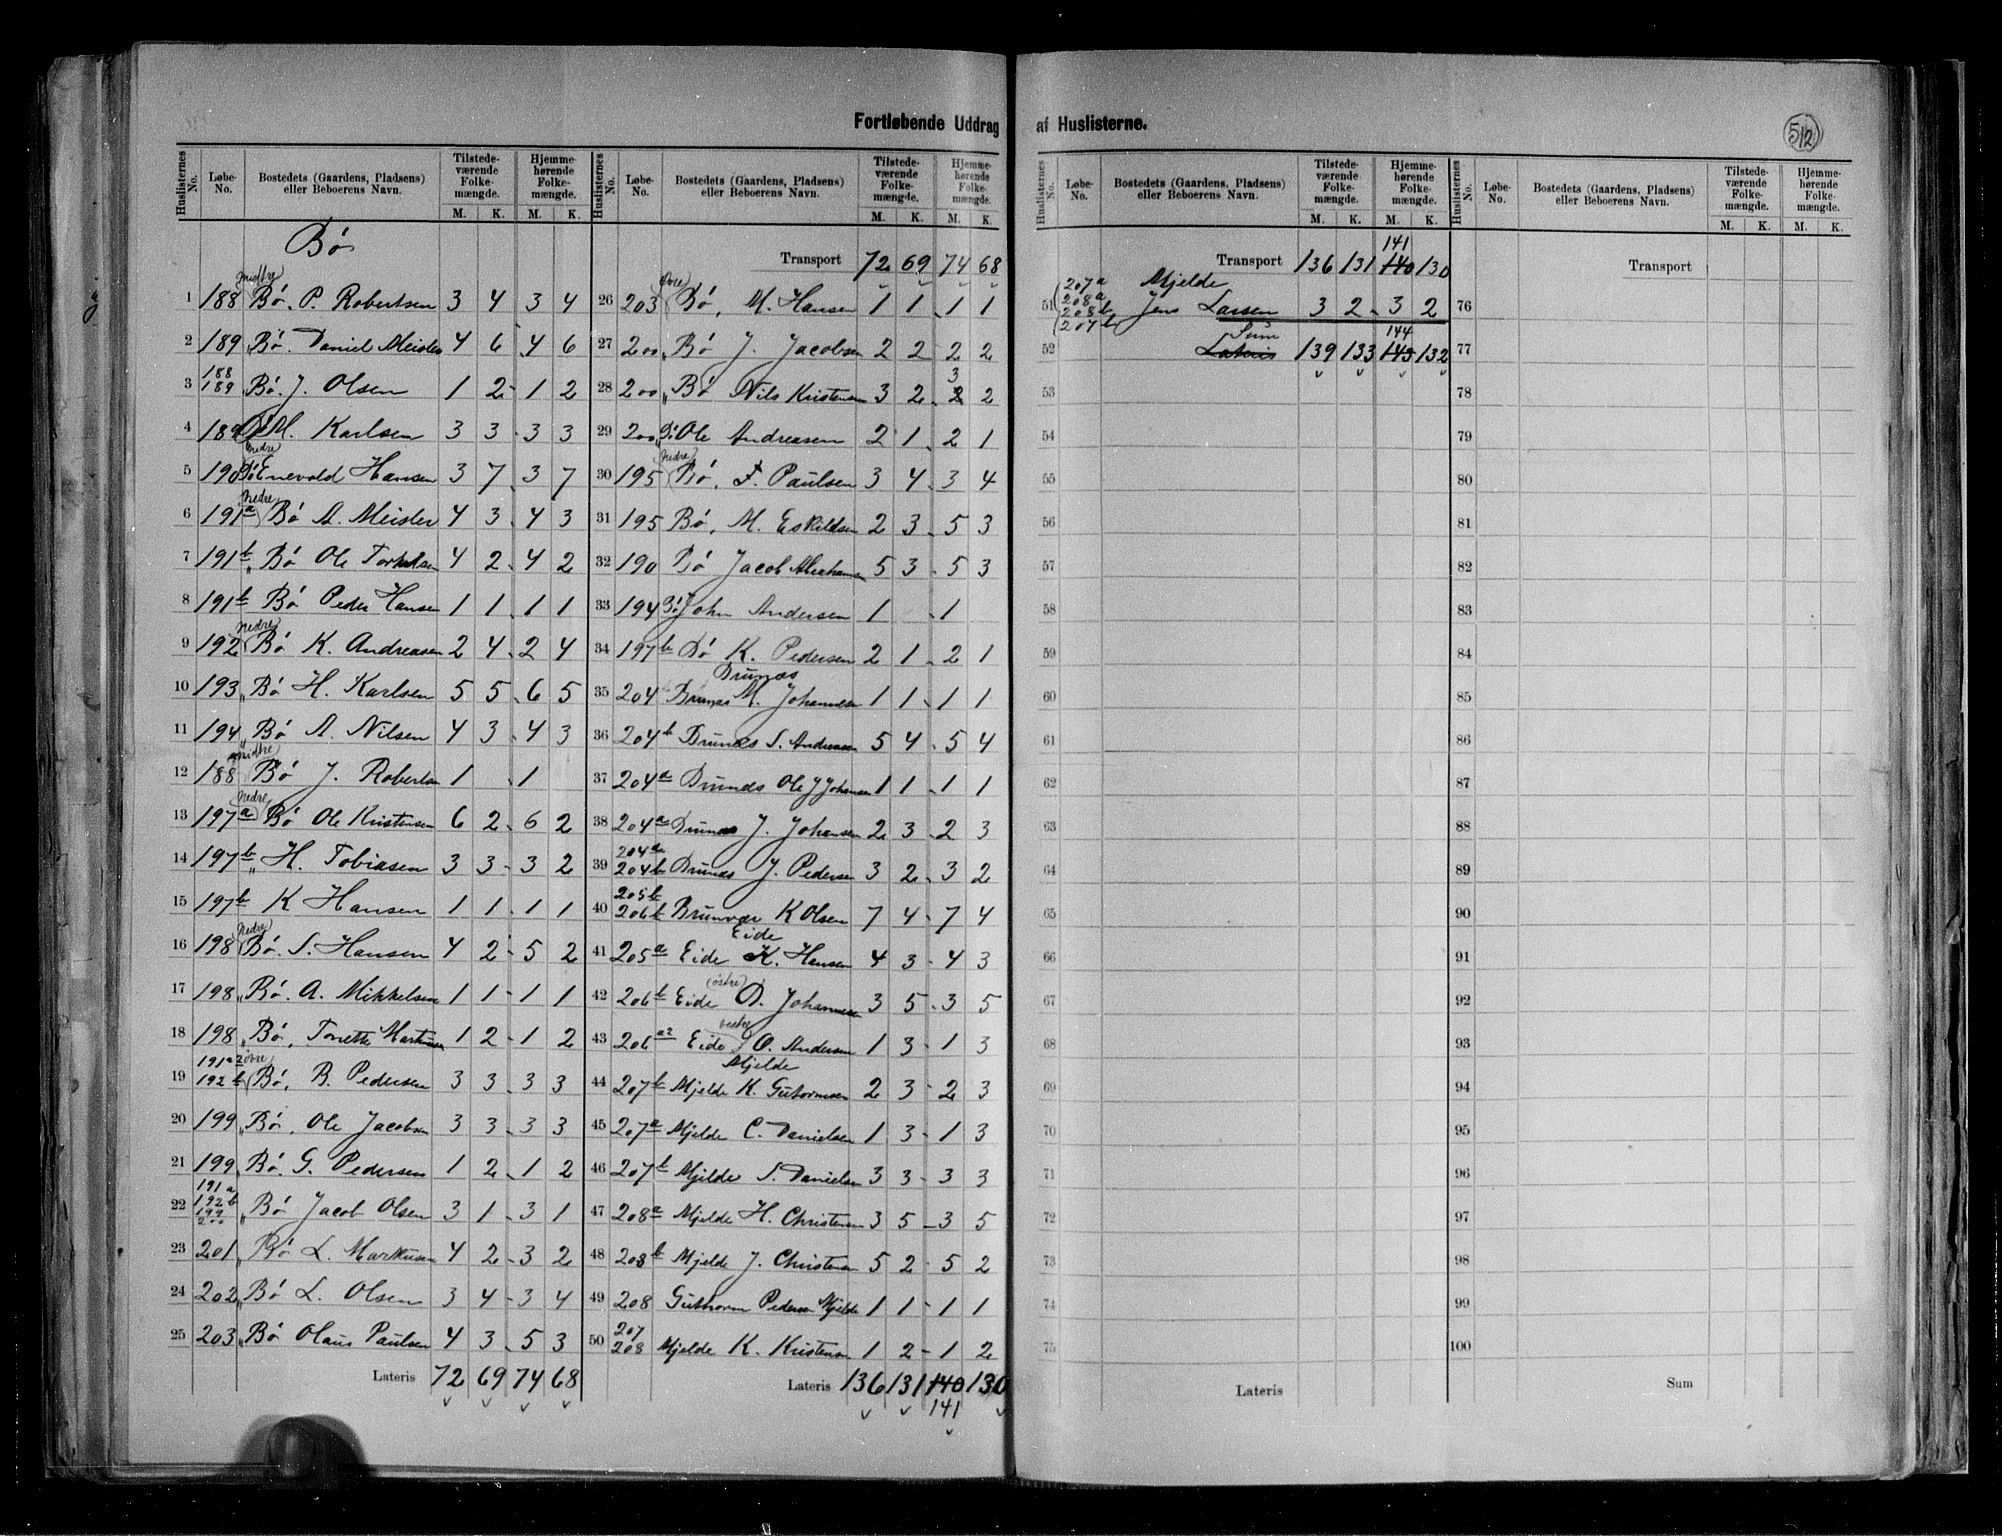 Fortløbende Uddrag af Huslisterne.
512
Huslisternes No. Løbe-No. Bostedets (Gaardens, Pladsens) eller Beboerens Navn. Tilstedeværende Folkemængde. M. K. Hjemmehørende Folkemængde. M. K.
Bø
1 188 (midtre) Bø. P. Robertsen 3 4 3 4
2 189 Bø. Daniel Meisler 4 6 - 4 6
3 188 189 Bø. J. Olsen 1 2 - 1 2
4 189 M. Karlsen 3 3 - 3 3
5 190 (nedre) Bø Enevold Hansen 3 7 - 3 7
6 191a (nedre) Bø A. Meisler 4 3 - 4 3
7 191b " Bø Ole Torkelsen 4 2 - 4 2
8 191b Bø Peder Hansen 1 1 - 1 1
9 192 (nedre) Bø K. Andreasen 2 4 - 2 4
10 193 " Bø H. Karlsen 5 5 - 6 5
11 194 " Bø A. Nilsen 4 3 - 4 3
12 188 (midtre) Bø J. Robertsen 1 - 1
13 197a (nedre) Bø Ole Kristensen 6 2 - 6 2
14 197b " H. Tobiasen 3 3 - 3 2
15 197b K Hansen 1 1 - 1 1
16 198 (nedre) Bø. S. Hansen 4 2 - 5 2
17 198 " Bø. A. Mikkelsen 1 1 - 1 1
18 198 " Bø, Tonette Markusen 1 2 - 1 2
19 191a2 192b (øvre) Bø, B. Pedersen 3 3 - 3 3
20 199 " Bø, Ole Jacobsen 3 3 - 3 3
21 199 Bø. G. Pedersen 1 2 - 1 2
22 191a 192b 199 200 " Bø Jacob Olsen 3 1 - 3 1
23 201 " Bø L. Markusen 4 2 - 3 2
24 202 " Bø L. Olsen 3 4 - 3 4
25 203 " Bø Olaus Paulsen 4 3 - 5 3
Lateris 72 69 74 68
Huslisternes No. Løbe-No. Bostedets (Gaardens, Pladsens) eller Beboerens Navn. Tilstedeværende Folkemængde. M. K. Hjemmehørende Folkemængde. M. K.
Transport 72 69 74 68
26 203 (øvre) Bø, M. Hansen 1 1 - 1 1
27 200 " Bø J. Jacobsen 2 2 - 2 2
28 200 " Bø Nils Kristensen 3 2 - 2 3 2
29 200 " Bø Ole Andreasen 2 1 - 2 1
30 195 (nedre) Bø, F. Paulsen 3 4 - 3 4
31 195 Bø, M. Eskildsen 2 3 - 5 3
32 190 Bø Jacob Abrahamsen 5 3 - 5 3
33 194 Bø John Andersen 1 - 1
34 197b Bø K. Pedersen 2 1 - 2 1
Brunæs
35 204 Brunæs M. Johannesen 1 1 - 1 1
36 204b Brunæs S. Andreasen 5 4 - 5 4
37 204a Brunæs Ole J Johansen 1 1 - 1 1
38 204a Brunæs J. Johansen 2 3 - 2 3
39 204a 204b Brunæs J. Pedersen 3 2 - 3 2
40 205b 206b Brunvær K Olsen 7 4 - 7 4
Eide
41 205a Eide K. Hansen 4 3 - 4 3
42 206b Eide (østre) D. Johannesen 3 5 - 3 5
43 206a2 Eide vestre O. Andersen 1 3 - 1 3
Mjelde
44 207b Mjelde K. Gutormsen 2 3 - 2 3
45 207a Mjelde C. Danielsen 1 3 - 1 3
46 207b Mjelde S. Danielsen 3 3 - 3 3
47 208a Mjelde H. Christensen 3 5 - 3 5
48 208b Mjelde J. Christensen 5 2 - 5 2
49 208 Guthorm Pedersen Mjelde 1 1 - 1 1
50 207 208 Mjelde K. Kristensen 1 2 - 1 2
Lateris 136 131 140 130
141
Huslisternes No. Løbe-No. Bostedets (Gaardens, Pladsens) eller Beboerens Navn. Tilstedeværende Folkemængde. M. K. Hjemmehørende Folkemængde. M. K.
141
Transport 136 131 140 130
Mjelde
51 207a 208a 208b 207b Jens Larsen 3 2 - 3 2
Sum 144
52 Lateris 139 133 143 132
53
54
55
56
57
58
59
60
61
62
63
64
65
66
67
68
69
70
71
72
73
74
75
Lateris
Huslisternes No. Løbe-No. Bostedets (Gaardens, Pladsens) eller Beboerens Navn. Tilstedeværende Folkemængde. M. K. Hjemmehørende Folkemængde. M. K.
Transport
76
77
78
79
80
81
82
83
84
85
86
87
88
89
90
91
92
93
94
95
96
97
98
99
100
Sum